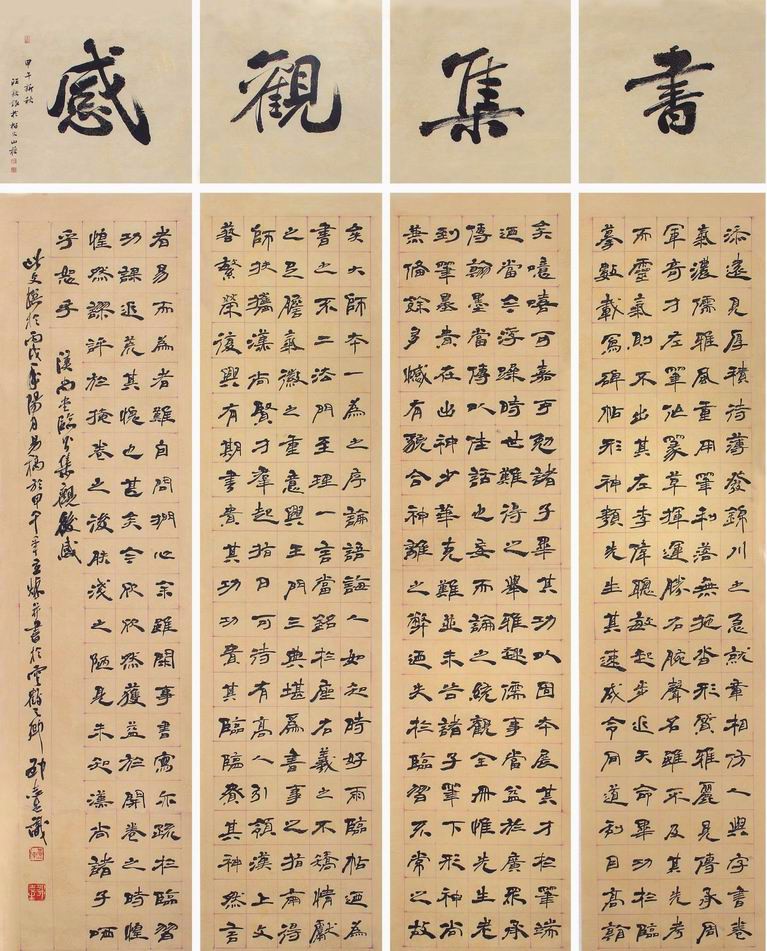 書
集
觀
感
甲午新秋
添遠見厚積待薄發錦川之急就章相仿人與字書卷
氣濃儒雅風重用筆利落無拖沓形質雅麗是傳承周
軍奇才左軍作篆草揮運勝右腕聲名雖不及其先考
而靈氣則不出其左李偉聰敏起步近天命畢功於臨
摹數載寫碑帖形神類先生其速成令同道刮目高翰
矣嘻嘻可嘉可勉諸子畢其功以固本展其才於筆端
迺當今浮躁時世難得之舉雅趣儒事當益於廣眾承
傳翰墨當傳以佳話也妄而論之統觀全冊惟先生卷
到筆墨貴在出神少華克難並未告諸子筆下形神尚
兼備餘多憾有貌合神離之弊迺失於臨習不常之故
矣大師本一為之序論語誨人如知時好雨臨帖迺為
書之不二法門至理一言當銘於座右羲之不矯情獻
之足膽氣徽之重意興王門三典堪為書事之指南得
師扶攜漢尚賢才羣起指日可待有高人引領漢上文
藝繁榮復興有期書貴其功功貴其臨臨賚其神然言
者易而為者難自問捫心余雖閑事書寫亦疏於臨習
功課近荒其愧也甚矣今欣欣然獲益於開卷之時惶
惶然謬評於掩卷之後膚淺之陋見未知漢尚諸子哂
乎恕乎
漢尚堂臨書集觀後感
此文撰於丙戌年陽月易稿於甲午